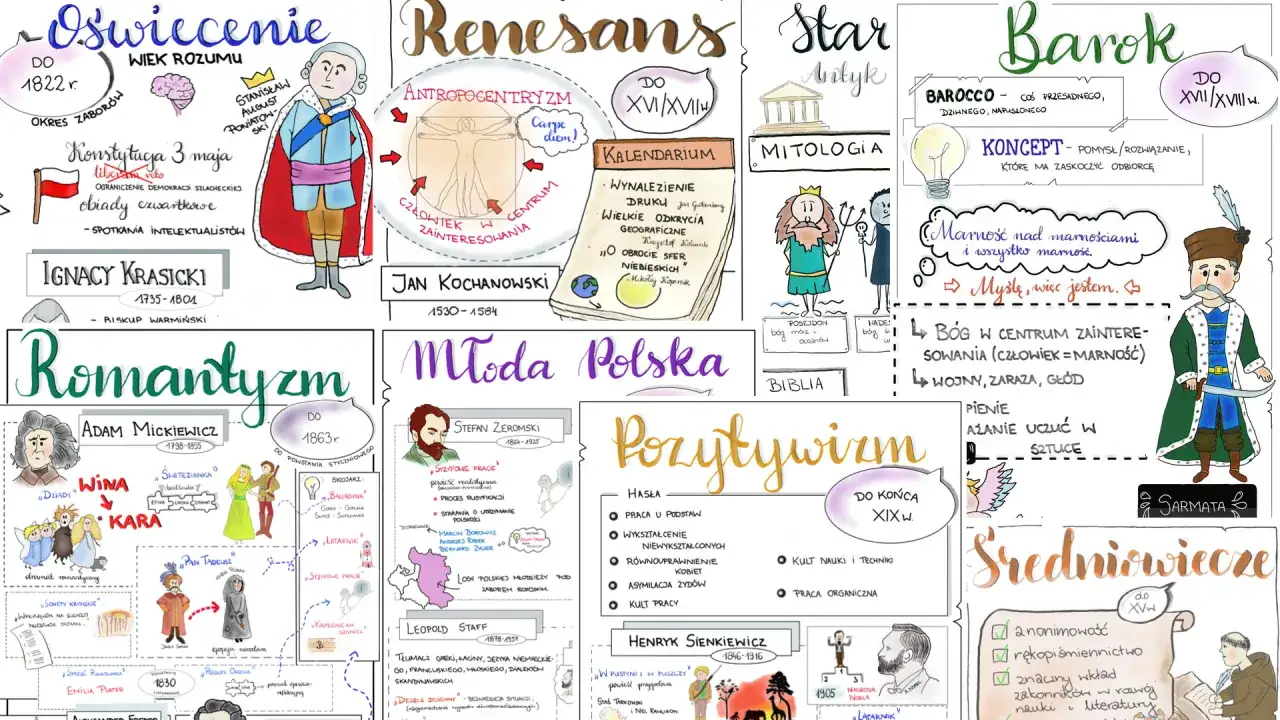 Oświecenie
WIEK ROZUMU
DO
1822 r.
OKRES ZABORÓW
STANISŁAW
AUGUST
PONIATOW-
SKI
Konstytucja 3 maja
liberum veto
OGRANICZENIE DEMOKRACJI SZLACHECKIEJ
obiady czwartkowe
- SPOTKANIA INTELEKTUALISTÓW
IGNACY KRASICKI
1735-1801
- BISKUP WARMIŃSKI
Renesans
ANTROPOCENTRYZM
DO
XVI/XVII w.
Carpe
diem!
CZŁOWIEK W CENTRUM
ZAINTERESOWANIA
KALENDARIUM
· WYNALEZIENIE
DRUKU Jan Gutenberg
WIELKIE ODKRYCIA
GEOGRAFICZNE
Krzysztof Kolumb
· „O OBROCIE SFER
NIEBIESKICH"
Mikołaj Kopernik
JAN KOCHANOWSKI
1530-1584
Star
Antyk
MITOLOGIA
POSEJDON
bóg mórz i
oceanów
HADE
bóg
BIBLIA
Barok
DO
XVII/XVIII w.
BAROCCO - COŚ PRZESADNEGO,
DZIWNEGO, NAPUSZONEGO
KONCEPT - POMYSŁ/ROZWIĄZANIE,
KTÓRE MA ZASKOCZYĆ ODBIORCĘ
Marność nad marnościami
i wszystko marność.
Myślę, więc jestem.
BÓG W CENTRUM ZAINTERE-
SOWANIA (CZŁOWIEK = MARNOŚĆ)
WOJNY, ZARAZA, GŁÓD
PIENIE
AŻANIE UCZUĆ W
SZTUCE
SARMATA
Romantyzm
ADAM MICKIEWICZ
1798-1855
DO
1863 r
DO POWSTANIA STYCZNIOWEGO
„DZIADY"
WINA
KARA
dramat romantyczny
„ŚWITEZIANKA"
ballada
EPIKA LIRYKA DRAMAT
SKOJARZ:
„BALLADYNA"
„LATARNIK"
„SYZYFOWE PRACE"
„KAMIENIE NA
SZANIEC"
„PAN TADEUSZ"
JACEK SOPLICA
KSIĄDZ ROBAK
epopeja narodowa
„SONETY KRYMSKIE"
EMILIA PLATER
POWSTANIE
1830
LISTOPADOWE
„REDUTA ORDONA"
ALEKSANDER FREDRO
Młoda Polska
STEFAN ŻEROMSKI
1864-1925
„SYZYFOWE PRACE"
PROCES RUSYFIKACJI
STARANIA O UTRZYMANIE
POLSKOŚCI
MARCIN BOROWICZ
ANDRZEJ RADEK
BERNARD ZYGIER
LOSY POLSKIEJ MŁODZIEŻY POD
ZABOREM ROSYJSKIM.
LEOPOLD STAFF
1878-1957
TŁUMACZ GREKI, ŁACINY, JĘZYKA NIEMIECKIE-
GO, FRANCUSKIEGO, WŁOSKIEGO, DIALEKTÓW
SKANDYNAWSKICH
„DESZCZ JESIENNY" - BEZNADZIEJA SYTUACJI,
Pozytywizm
DO KOŃCA
XIX w.
HASŁA
PRACA U PODSTAW
WYKSZTAŁCENIE
NIEWYKSZTAŁCONYCH
RÓWNOUPRAWNIENIE
KOBIET
ASYMILACJA ŻYDÓW
KULT PRACY
KULT NAUKI I TECHNIKI
PRACA ORGANICZNA
HENRYK SIENKIEWICZ
1846-1916
„W PUSTYNI I W PUSZCZY
powieść przygodowa
STAŚ TARKOWSKI
I NEL RAWLISON
1905
NAGRODA
NOBLA
„LATARNIK"
Średniowiecze
do
XV w
anonimowość
rękopiśmiennictwo
znaczny wkład
zakonników w rozwój
nauki i literatury